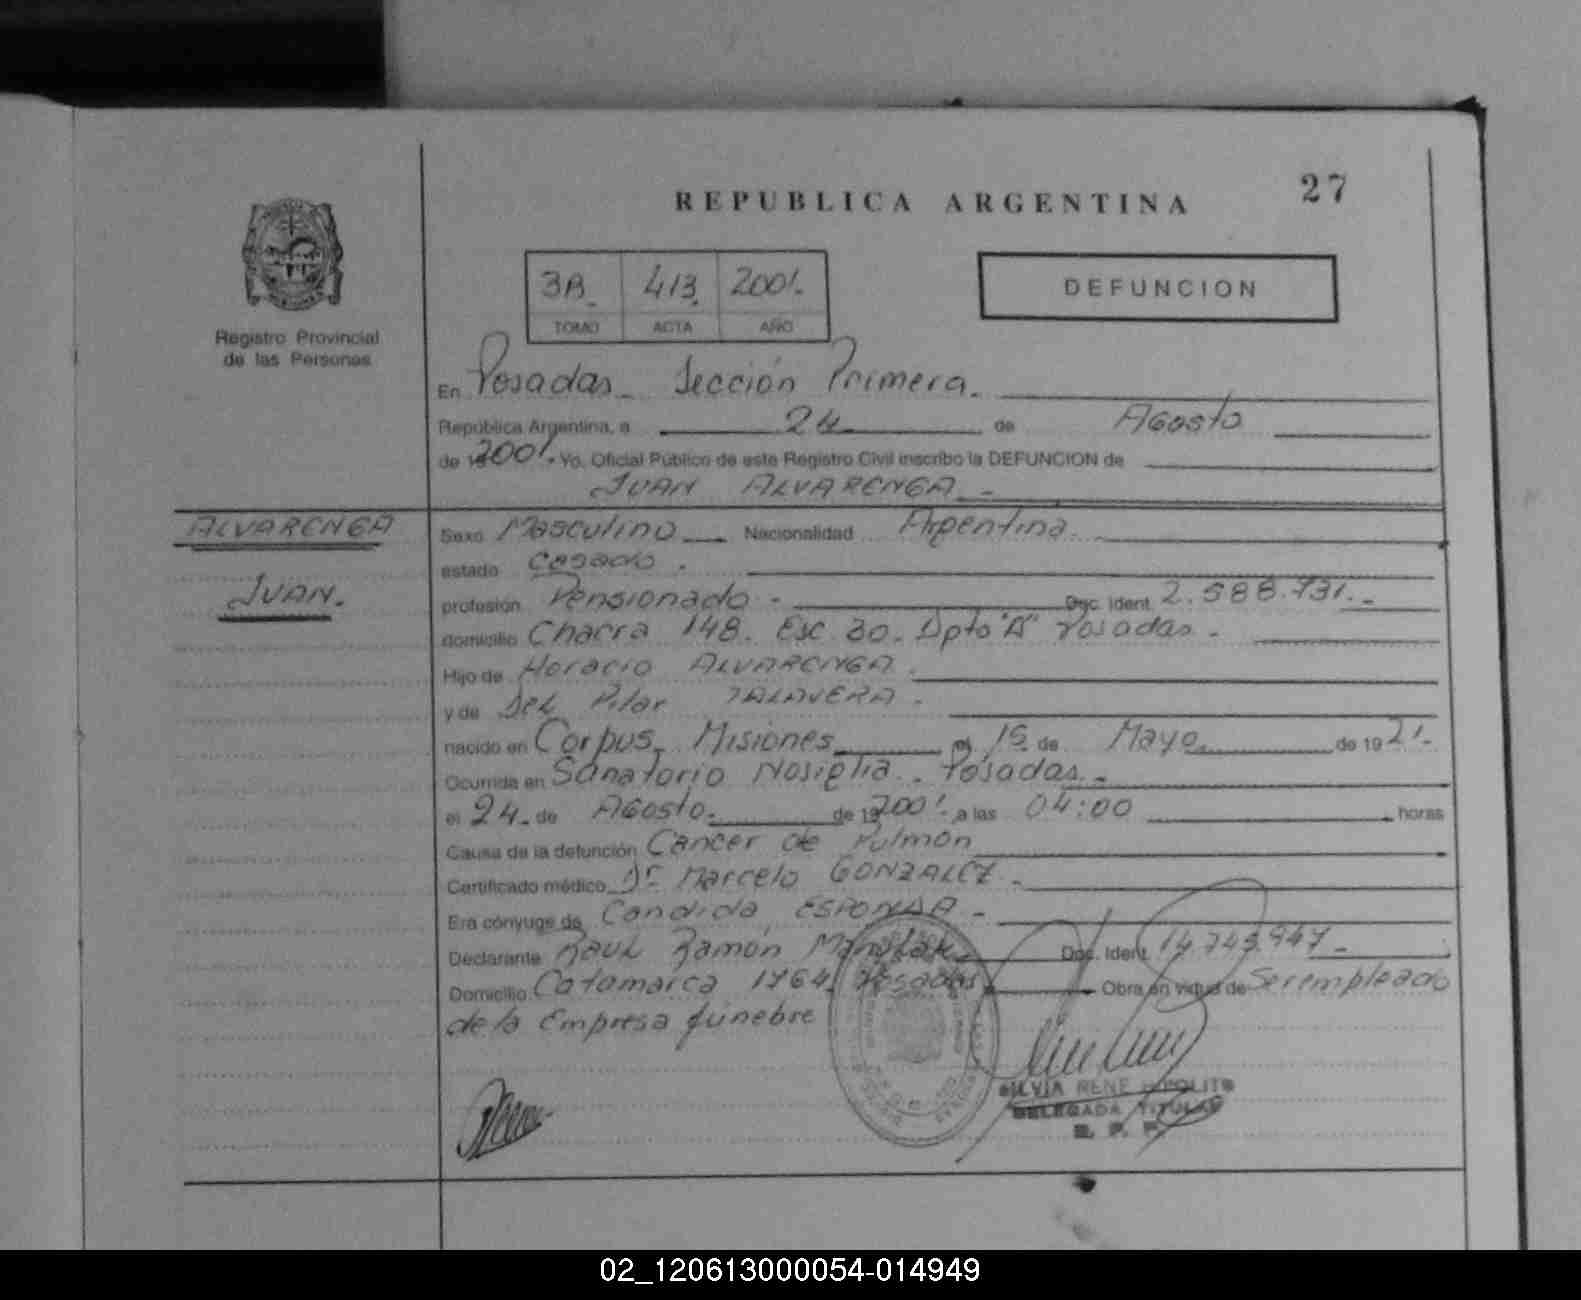 27
REPUBLICA ARGENTINA
DEFUNCION
3B 413 2001
TOMO ACTA AÑO
Registro Provincial
de las Personas
En Posadas Sección Primera
República Argentina, a 24 de Agosto
de 19 2001 Yo, Oficial Público de este Registro Civil inscribo la DEFUNCION de
JUAN ALVARENGA
ALVARENGA
JUAN.
Sexo Masculino Nacionalidad Argentina
estado Casado
profesión Pensionado Doc. Ident. 2.588.731
domicilio Chacra 148. Esc 30. Dpto "A" Posadas
Hijo de Horacio ALVARENGA
y de Del Pilar TALAVERA
nacido en Corpus, Misiones el de Mayo de 1921
Ocurrida en Sanatorio Nosiglia Posadas
el 24 de Agosto de 19 2001 a las 04:00 horas
Causa de la defunción Cáncer de Pulmón
Certificado médico Dr Marcelo GONZALEZ
Era cónyuge de Candida ESPONDA
Declarante Raúl Ramón Doc. Ident. 14.745.947
Domicilio Catamarca 1764 Posadas Obra en virtud de Ser empleado
de la Empresa fúnebre
SILVIA RENE HIPOLITO
DELEGADA TITULAR
R. P. P.
02_120613000054-014949